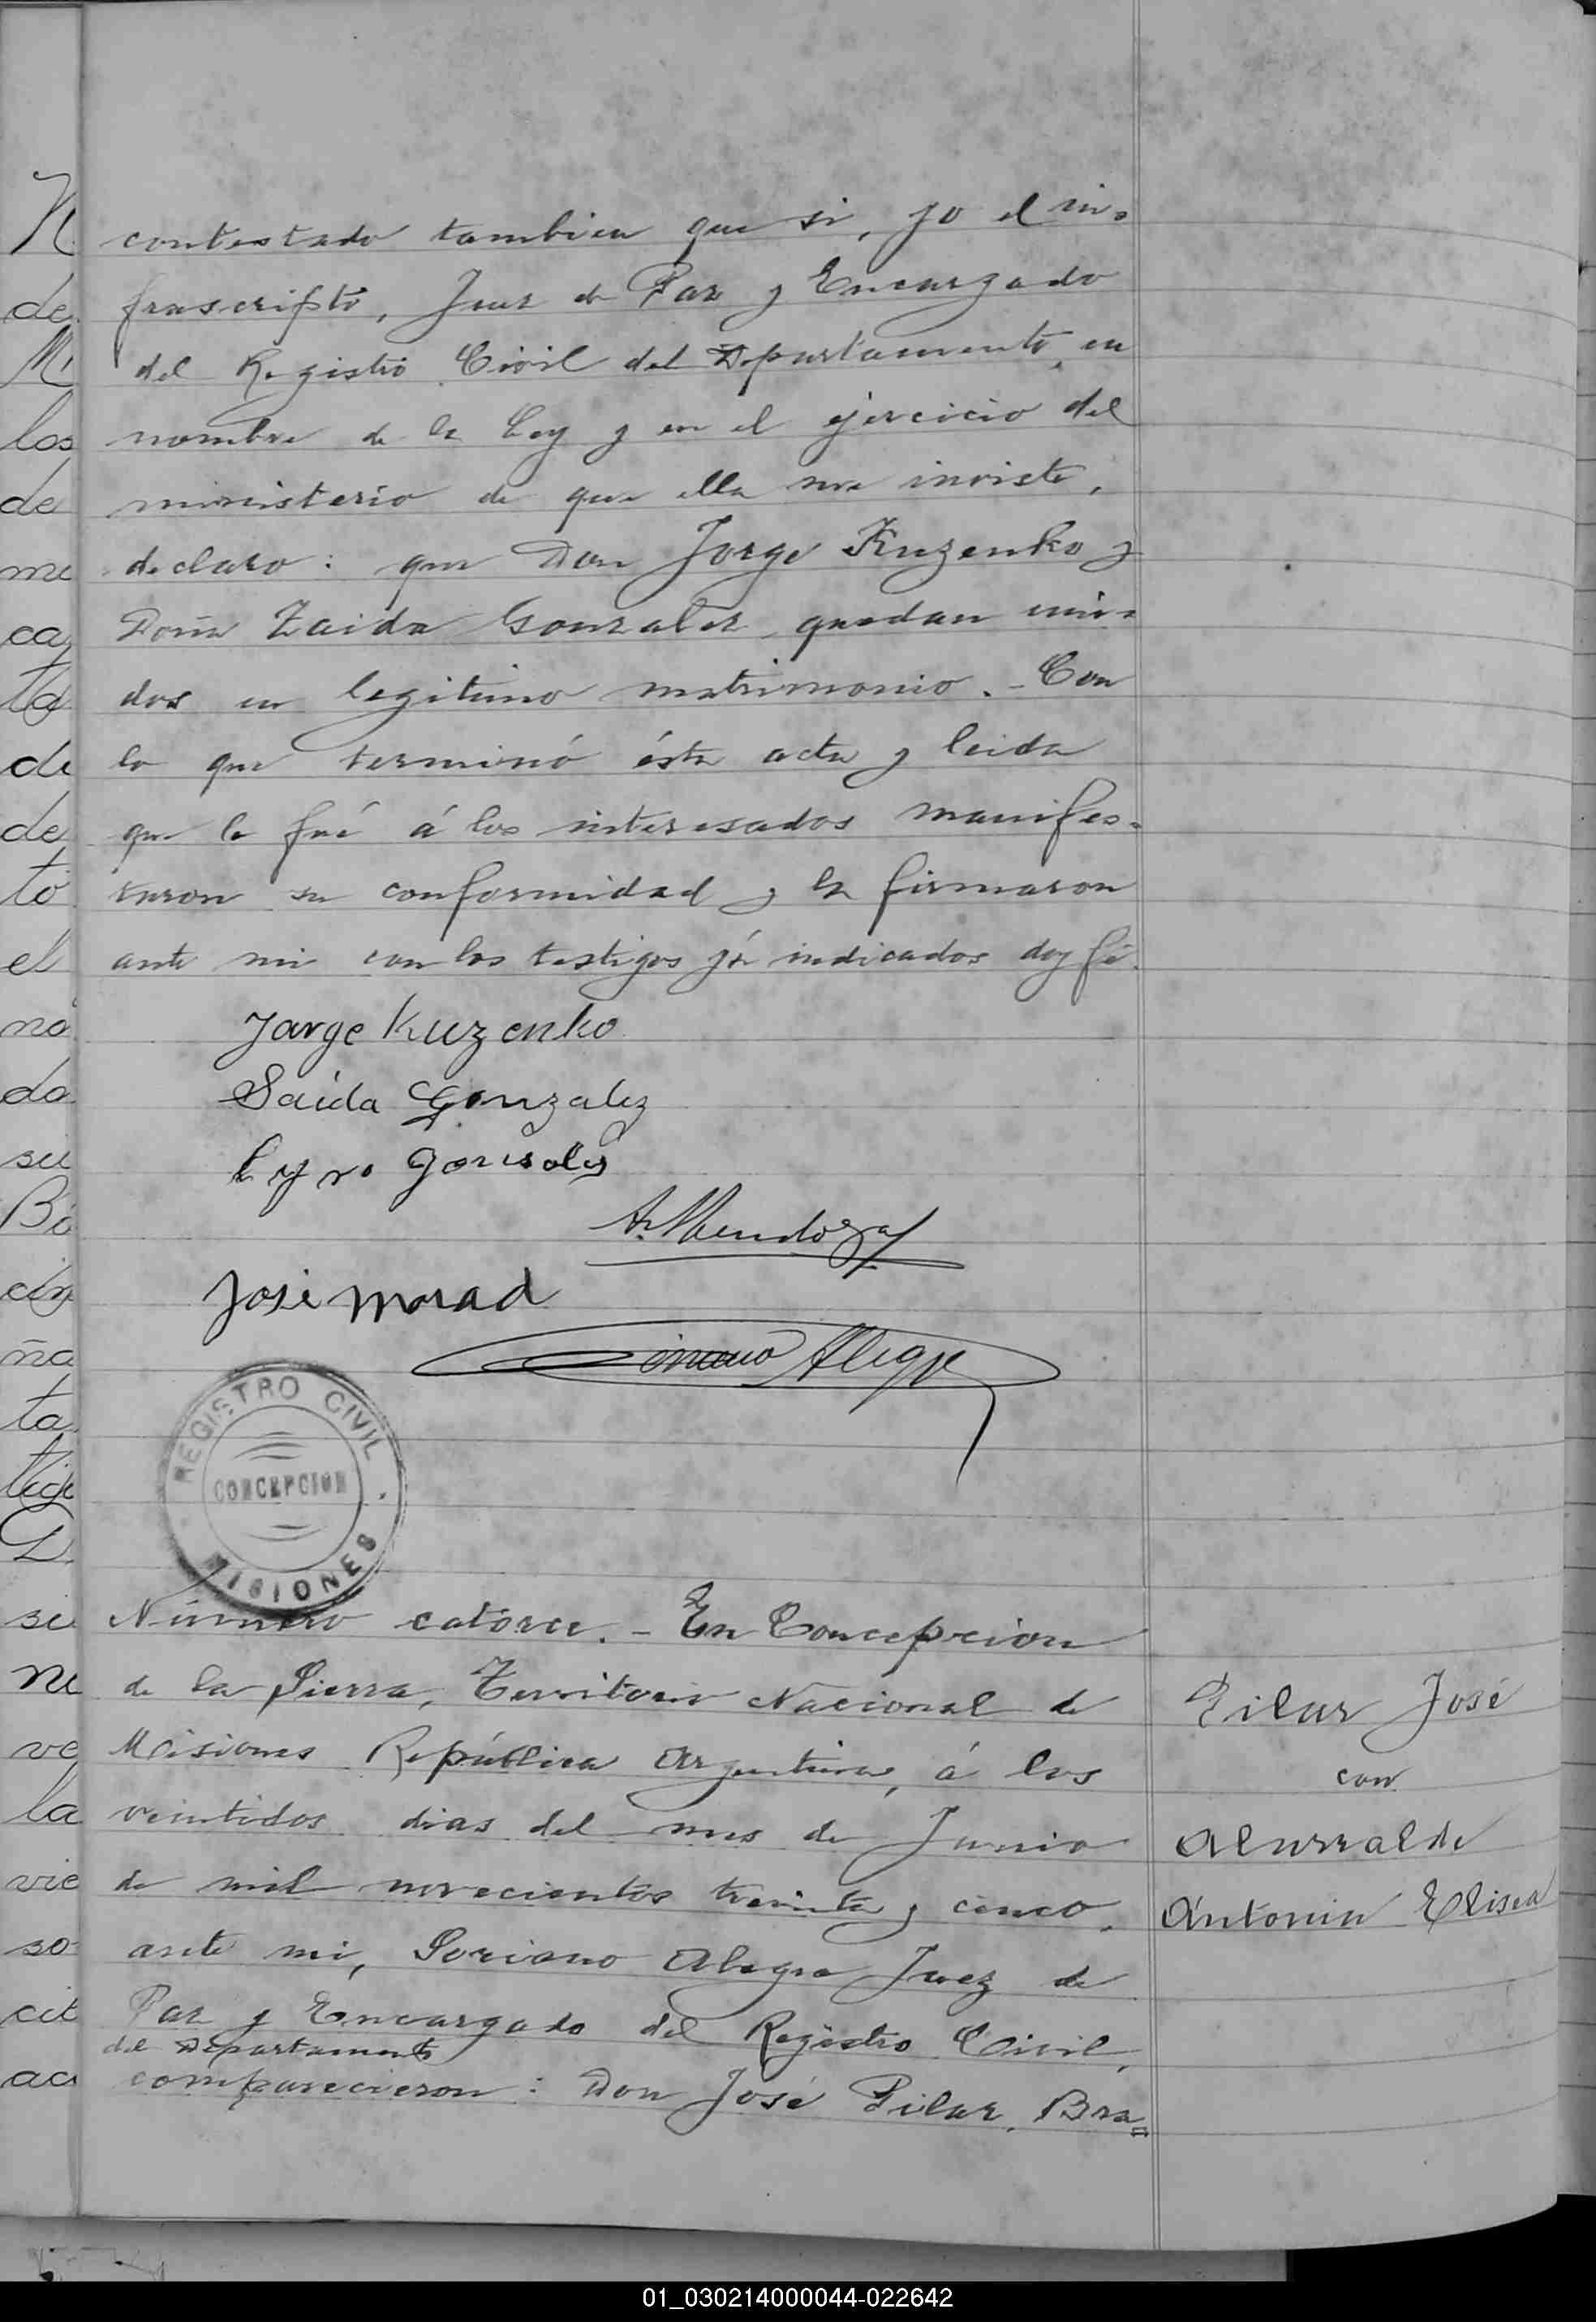 contestado tambien que si, yo el in-
frascripto, Juez de Paz y Encargado
del Registro Civil del Departamento, en
nombre de la Ley y en el ejercicio del
ministerio de que ella me inviste,
declaro: que Don Jorge Kuzenko y
Doña Zaida Gonzalez, quedan uni-
dos en legitimo matrimonio.- Con
lo que terminó ésta acta y leida
que le fué á los interesados manifes-
taron su conformidad y la firmaron
ante mi con los testigos yá indicados doy fé.
Jorge Kuzenko
Saida Gonzalez
Cyro Gonsales
A. Mendoza
José Morad
Alegre
REGISTRO CIVIL
CONCEPCION
MISIONES
Número catorce.- En Concepcion
de la Sierra, Territorio Nacional de
Misiones República Argentina, á los
veintidos dias del mes de Junio
de mil novecientos treinta y cinco,
ante mi, Soriano Alegre Juez de
Paz y Encargado del Registro Civil,
del Departamento
comparecieron: Don José Pilar, Bra=
Pilar José
con
Alurralde
Antonia Elisea
N
de
Mi
los
de
me
ca
ta
de
de
to
el
no
do
su
Bo
cin
ña
ta
tig
D
si
ne
ve
la
vie
so
cit
ac
01_030214000044-022642